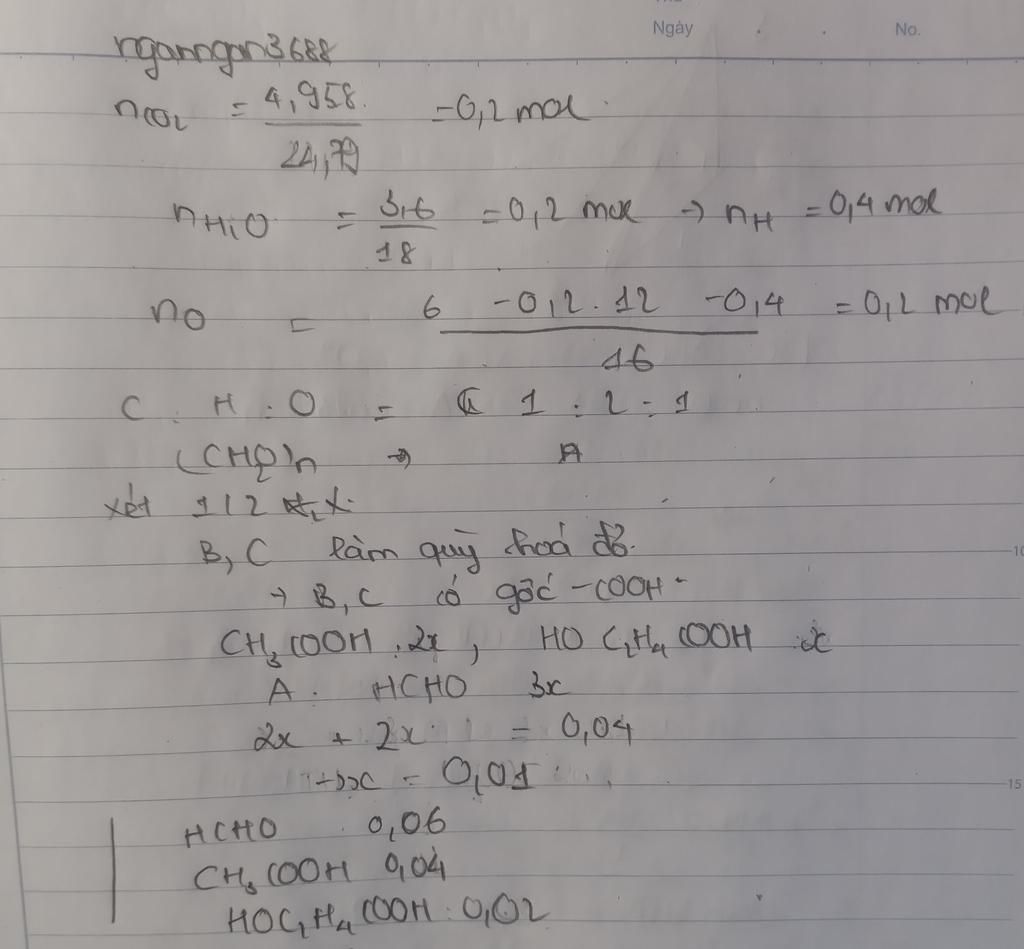 Ngày No.
nganngan3688
nCO2 = 4,958 / 24,79 = 0,2 mol
nH2O = 3,6 / 18 = 0,2 mol → nH = 0,4 mol
nO = 6 - 0,2 . 12 - 0,4 / 16 = 0,2 mol
C : H : O = 1 : 2 : 1
(CH2O)n → A
xét 1/2 X.
B, C làm quỳ hoá đỏ.
→ B, C có gốc -COOH
CH3COOH : 2x , HO C2H4 COOH x
A . HCHO 3x
2x + 2x = 0,04
→ x = 0,01
HCHO 0,06
CH3COOH 0,04
HOC2H4COOH : 0,02
10
15